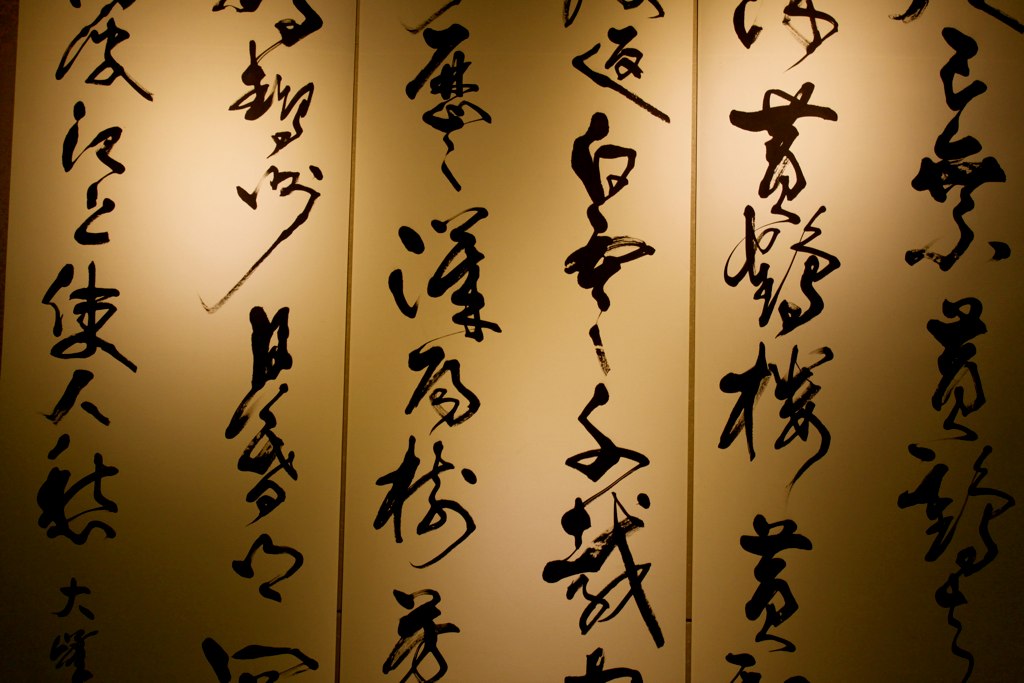 已乘黃鶴去
黃鶴樓黃
返白雲千載
歷々漢陽樹芳
鵡洲日暮鄉
波江上使人愁
大